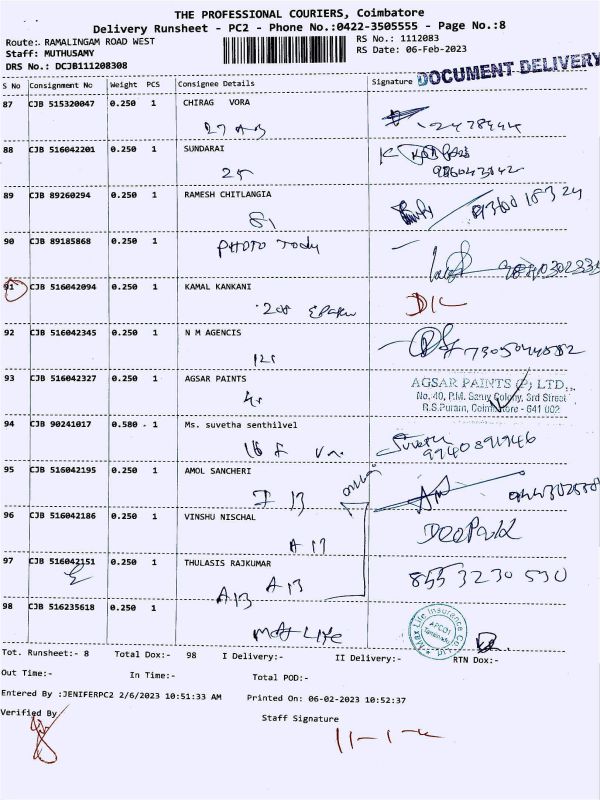 THE PROFESSIONAL COURIERS, Coimbatore
Delivery Runsheet - PC2 - Phone No.:0422-3505555 - Page No.:8
Route:. RAMALINGAM ROAD WEST
RS No.: 1112083
Staff: MUTHUSAMY
RS Date: 06-Feb-2023
DRS No.: DCJB111208308
DOCUMENT DELIVERY
S No Consignment No Weight PCS Consignee Details Signature
87 CJB 515320047 0.250 1 CHIRAG VORA
88 CJB 516042201 0.250 1 SUNDARAI
25
89 CJB 89260294 0.250 1 RAMESH CHITLANGIA
81
90 CJB 89185868 0.250 1 PHOTO Tody
91 CJB 516042094 0.250 1 KAMAL KANKANI
208
92 CJB 516042345 0.250 1 N M AGENCIS
93 CJB 516042327 0.250 1 AGSAR PAINTS
AGSAR PAINTS (P) LTD.,
No, 40, P.M. Samy Colony, 3rd Street
R.S.Puram, Coimbatore - 641 002
94 CJB 90241017 0.580 - 1 Ms. suvetha senthilvel
Suvetha
9740891946
95 CJB 516042195 0.250 1 AMOL SANCHERI
F 13
96 CJB 516042186 0.250 1 VINSHU NISCHAL
A 13
Deepak
97 CJB 516042151 0.250 1 THULASIS RAJKUMAR
A13 A 13
855 3230 530
98 CJB 516235618 0.250 1
Max LIFE
Max Life Insurance Co.
Tot. Runsheet:- 8 Total Dox:- 98 I Delivery:- II Delivery:- RTN Dox:-
Out Time:- In Time:- Total POD:-
Entered By :JENIFERPC2 2/6/2023 10:51:33 AM Printed On: 06-02-2023 10:52:37
Verified By
Staff Signature